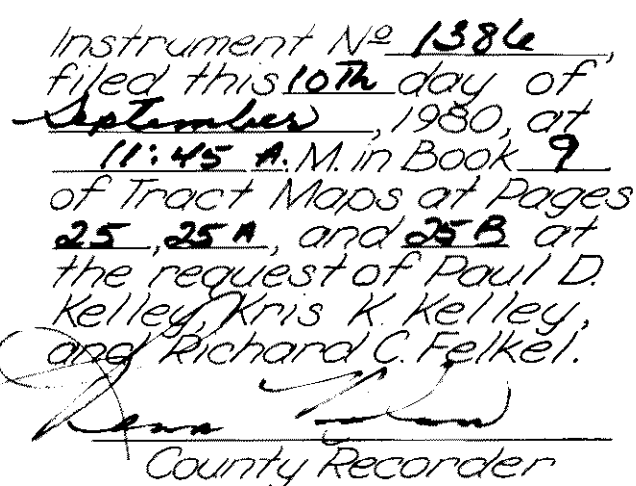 Instrument Nº 1386,
filed this 10Th day of
September, 1980, at
11:45 A.M. in Book 9
of Tract Maps at Pages
25, 25A, and 25B at
the request of Paul D.
Kelley, Kris K. Kelley,
and Richard C. Felkel.
County Recorder